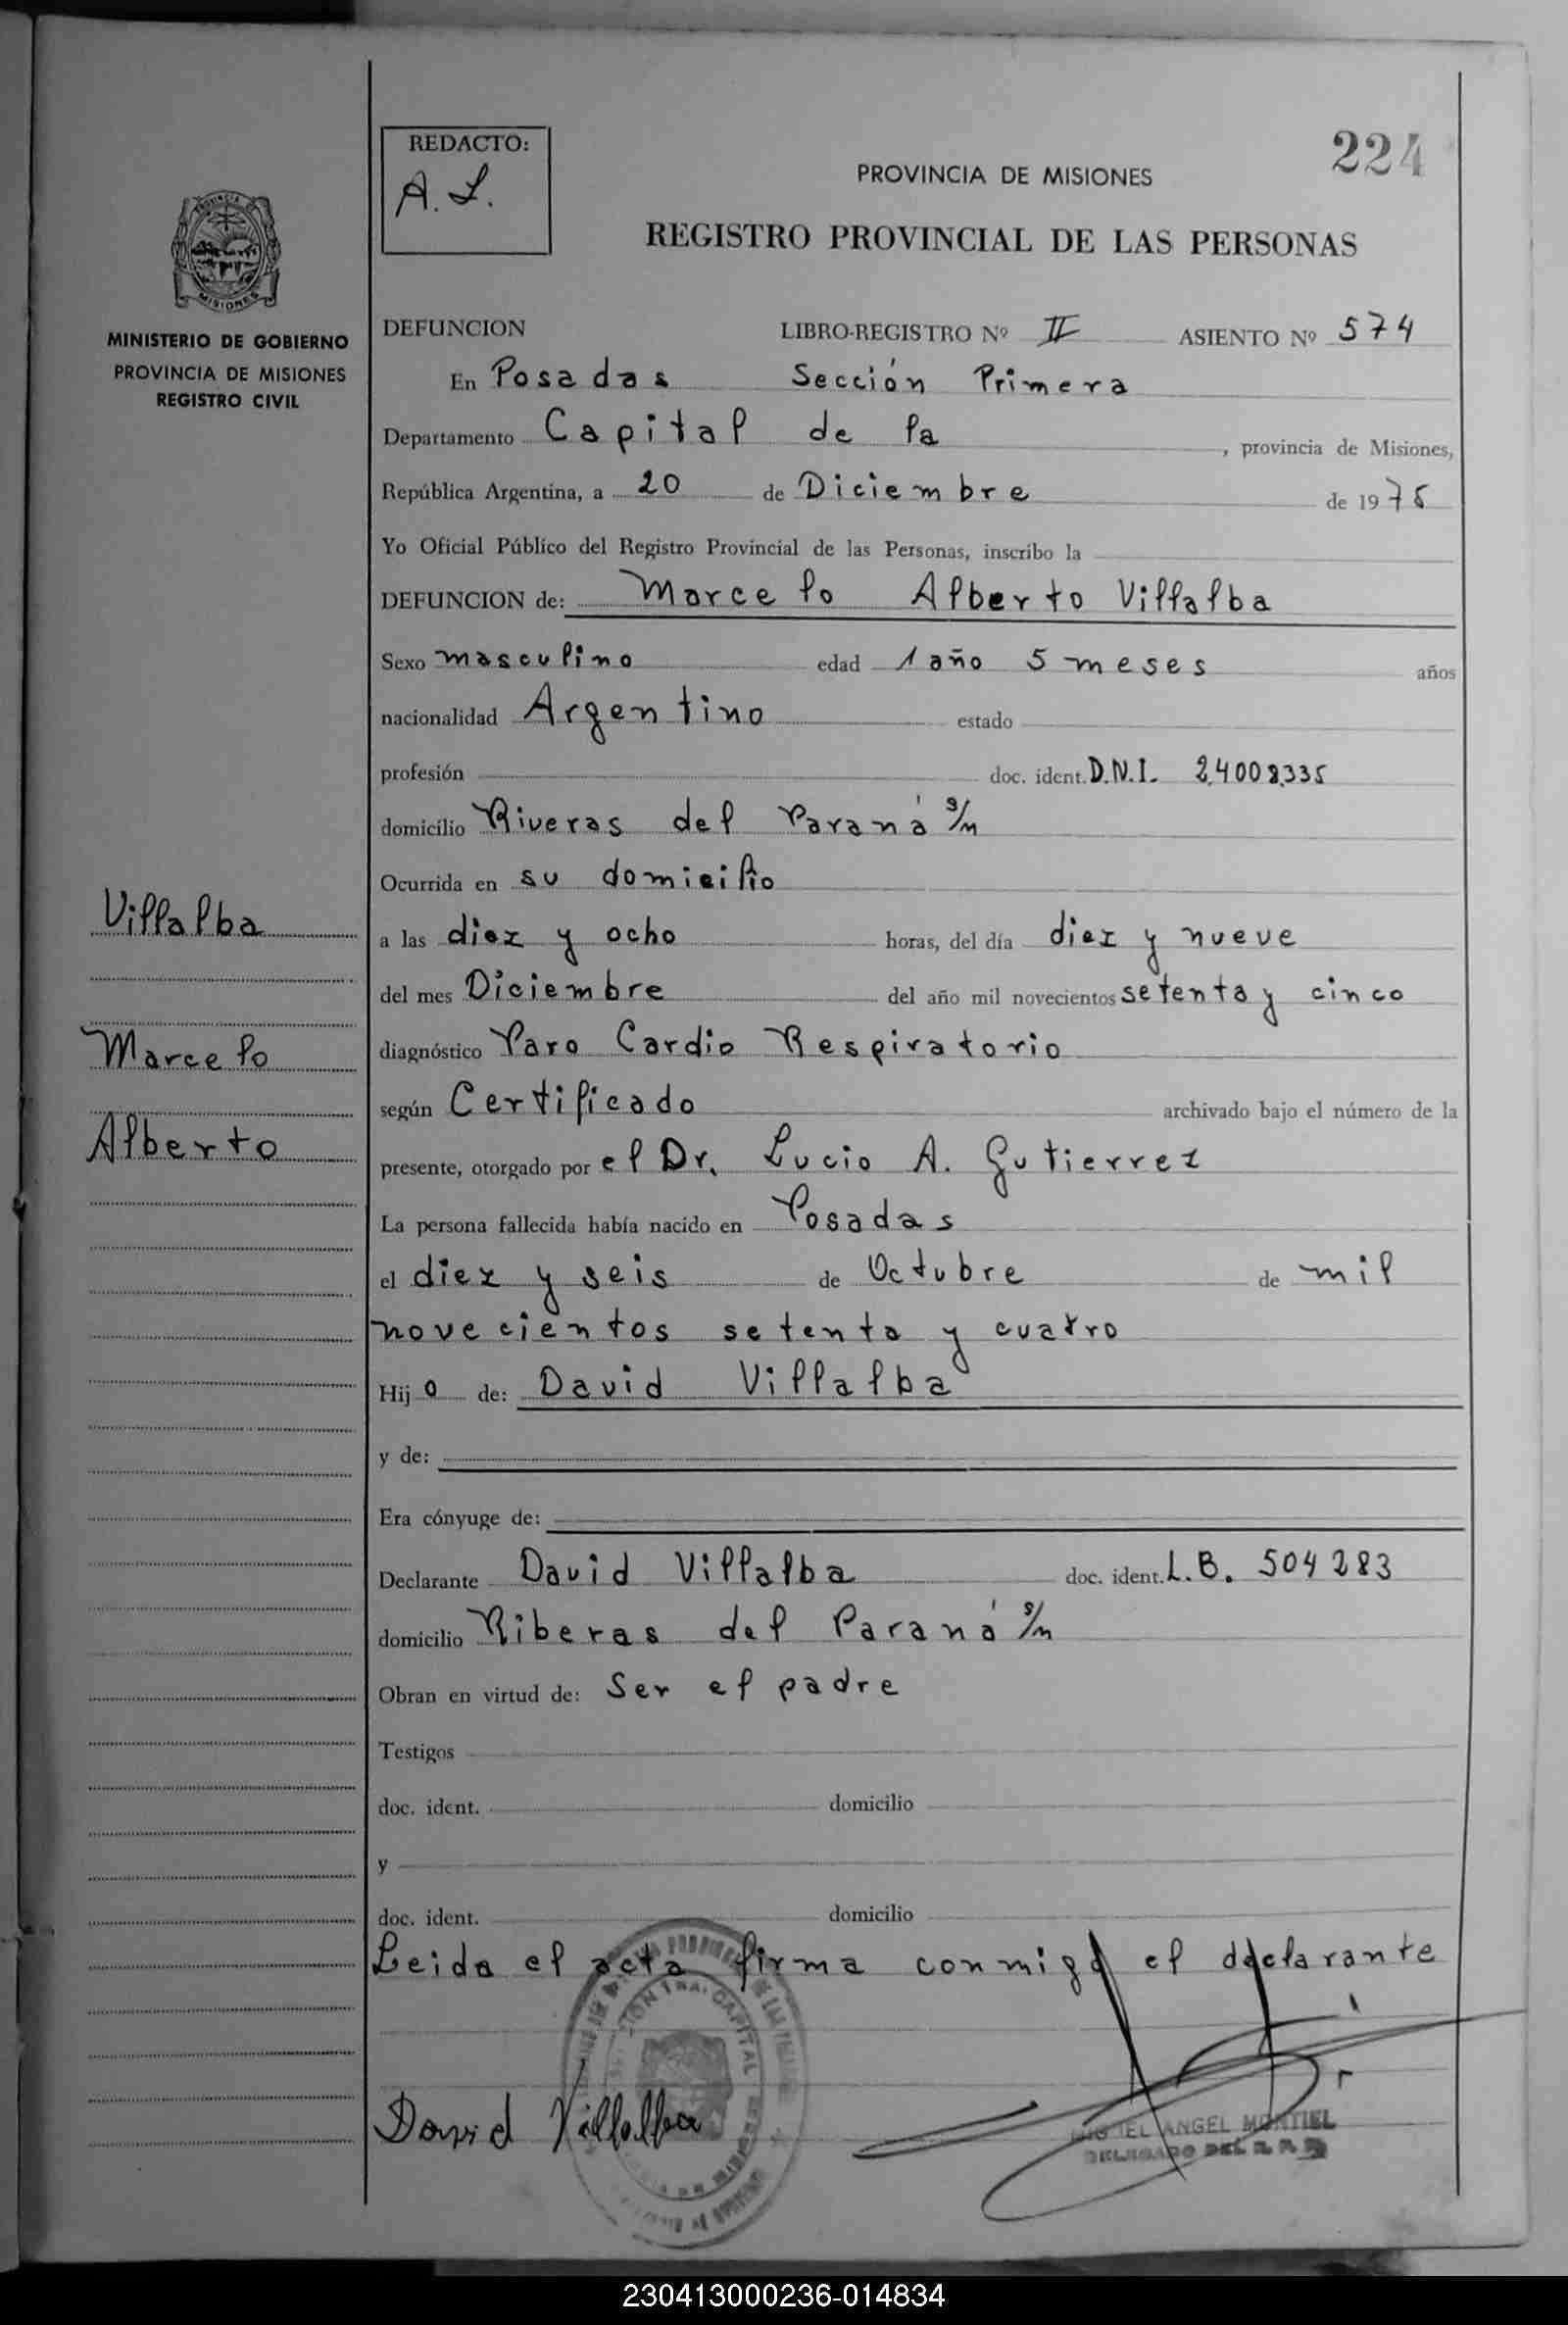 REDACTO:
A. L.
224
PROVINCIA DE MISIONES
REGISTRO PROVINCIAL DE LAS PERSONAS
PROVINCIA DE
MISIONES
MINISTERIO DE GOBIERNO
PROVINCIA DE MISIONES
REGISTRO CIVIL
DEFUNCION LIBRO-REGISTRO Nº II ASIENTO Nº 574
En Posadas Sección Primera
Departamento Capital de la , provincia de Misiones,
República Argentina, a 20 de Diciembre de 1975
Yo Oficial Público del Registro Provincial de las Personas, inscribo la
DEFUNCION de: Marcelo Alberto Villalba
Sexo masculino edad 1 año 5 meses años
nacionalidad Argentino estado
profesión doc. ident. D.N.I. 24.008.335
domicilio Riveras del Paraná s/n
Ocurrida en su domicilio
Villalba
a las diez y ocho horas, del día diez y nueve
del mes Diciembre del año mil novecientos setenta y cinco
Marcelo
diagnóstico Paro Cardio Respiratorio
según Certificado archivado bajo el número de la
Alberto
presente, otorgado por el Dr. Lucio A. Gutierrez
La persona fallecida había nacido en Posadas
el diez y seis de Octubre de mil
novecientos setenta y cuatro
Hijo de: David Villalba
y de:
Era cónyuge de:
Declarante David Villalba doc. ident. L.B. 504283
domicilio Riberas del Paraná s/n
Obran en virtud de: Ser el padre
Testigos
doc. ident. domicilio
y
doc. ident. domicilio
Leida el acta firma conmigo el declarante
CAPITAL
David Villalba
MIGUEL ANGEL MONTIEL
DELEGADO DEL R. P. P.
230413000236-014834